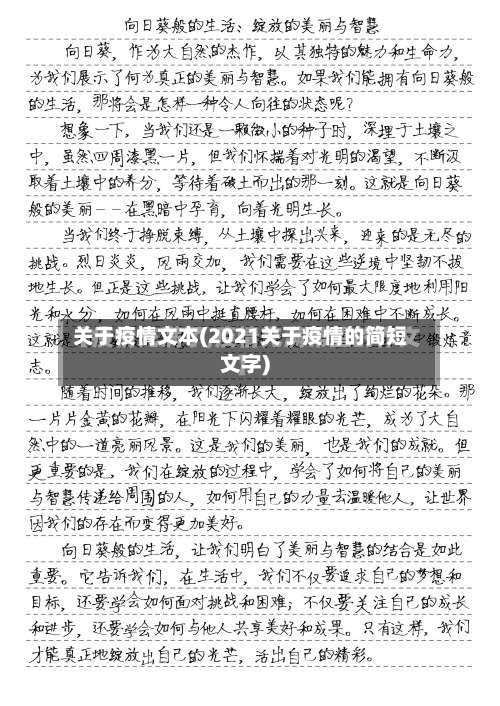 向日葵般的生活：绽放的美丽与智慧
向日葵，作为大自然的杰作，以其独特的魅力和生命力，
为我们展示了何为真正的美丽与智慧。如果我们能拥有向日葵般
的生活，那将会是怎样一种令人向往的状态呢？
想象一下，当我们还是一颗微小的种子时，深埋于土壤之
中，虽然四周漆黑一片，但我们怀揣着对光明的渴望，不断汲
取着土壤中的养分，等待着破土而出的那一刻。这就是向日葵
般的美丽——在黑暗中孕育，向着光明生长。
当我们终于挣脱束缚，从土壤中探出头来，迎来的是无尽的
挑战。烈日炎炎，风雨交加，我们需要在这些逆境中坚韧不拔
地生长。但正是这些挑战，让我们学会了如何最大限度地利用阳
光和水分，如何在风雨中挺直腰杆，如何在困难中不断成长。
这就是
关于疫情文本(2021关于疫情的简短
文字)
锻炼意
志。
随着时间的推移，我们逐渐长大，绽放出了绚烂的花朵。那
一片片金黄的花瓣，在阳光下闪耀着耀眼的光芒，成为了大自
然中的一道亮丽风景。这是我们的美丽，也是我们的成就。但
更重要的是，我们在绽放的过程中，学会了如何将自己的美丽
与智慧传递给周围的人，如何用自己的力量去温暖他人，让世界
因我们的存在而变得更加美好。
向日葵般的生活，让我们明白了美丽与智慧的结合是如此
重要。它告诉我们，在生活中，我们不仅要追求自己的梦想和
目标，还要学会如何面对挑战和困难；不仅要关注自己的成长
和进步，还要学会如何与他人共享美好和成果。只有这样，我们
才能真正地绽放出自己的光芒，活出自己的精彩。